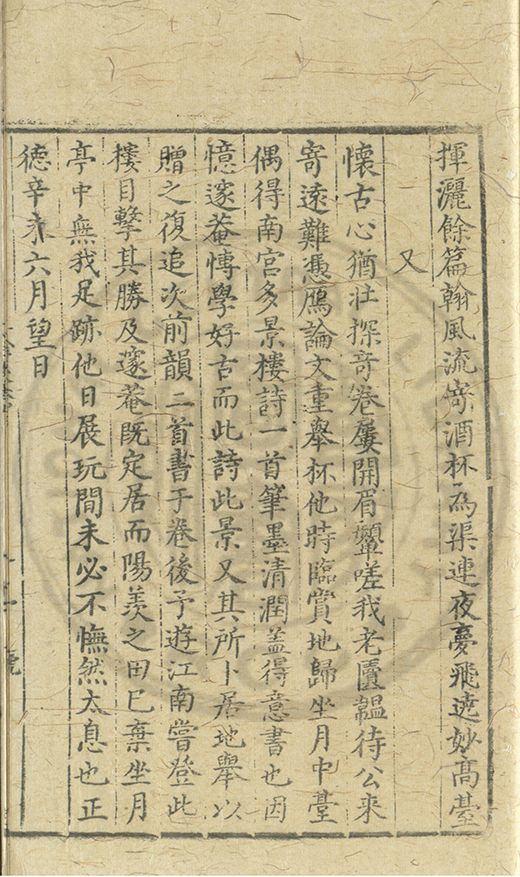 揮灑餘篇翰風流寄酒杯為渠連夜夢飛遶妙高臺
又
懷古心猶壯探奇卷屢開眉顰嗟我老匵韞待公來
寄遠難憑鴈論文重舉杯他時臨賞地歸坐月中臺
偶得南宮多景樓詩一首筆墨清潤盖得意書也因
憶邃菴愽學好古而此詩此景又其所卜居地舉以
贈之復追次前韻二首書于卷後予遊江南嘗登此
樓目擊其勝及邃菴既定居而陽羨之田巳棄坐月
亭中無我足跡他日展玩間未必不憮然太息也正
德辛未六月望日